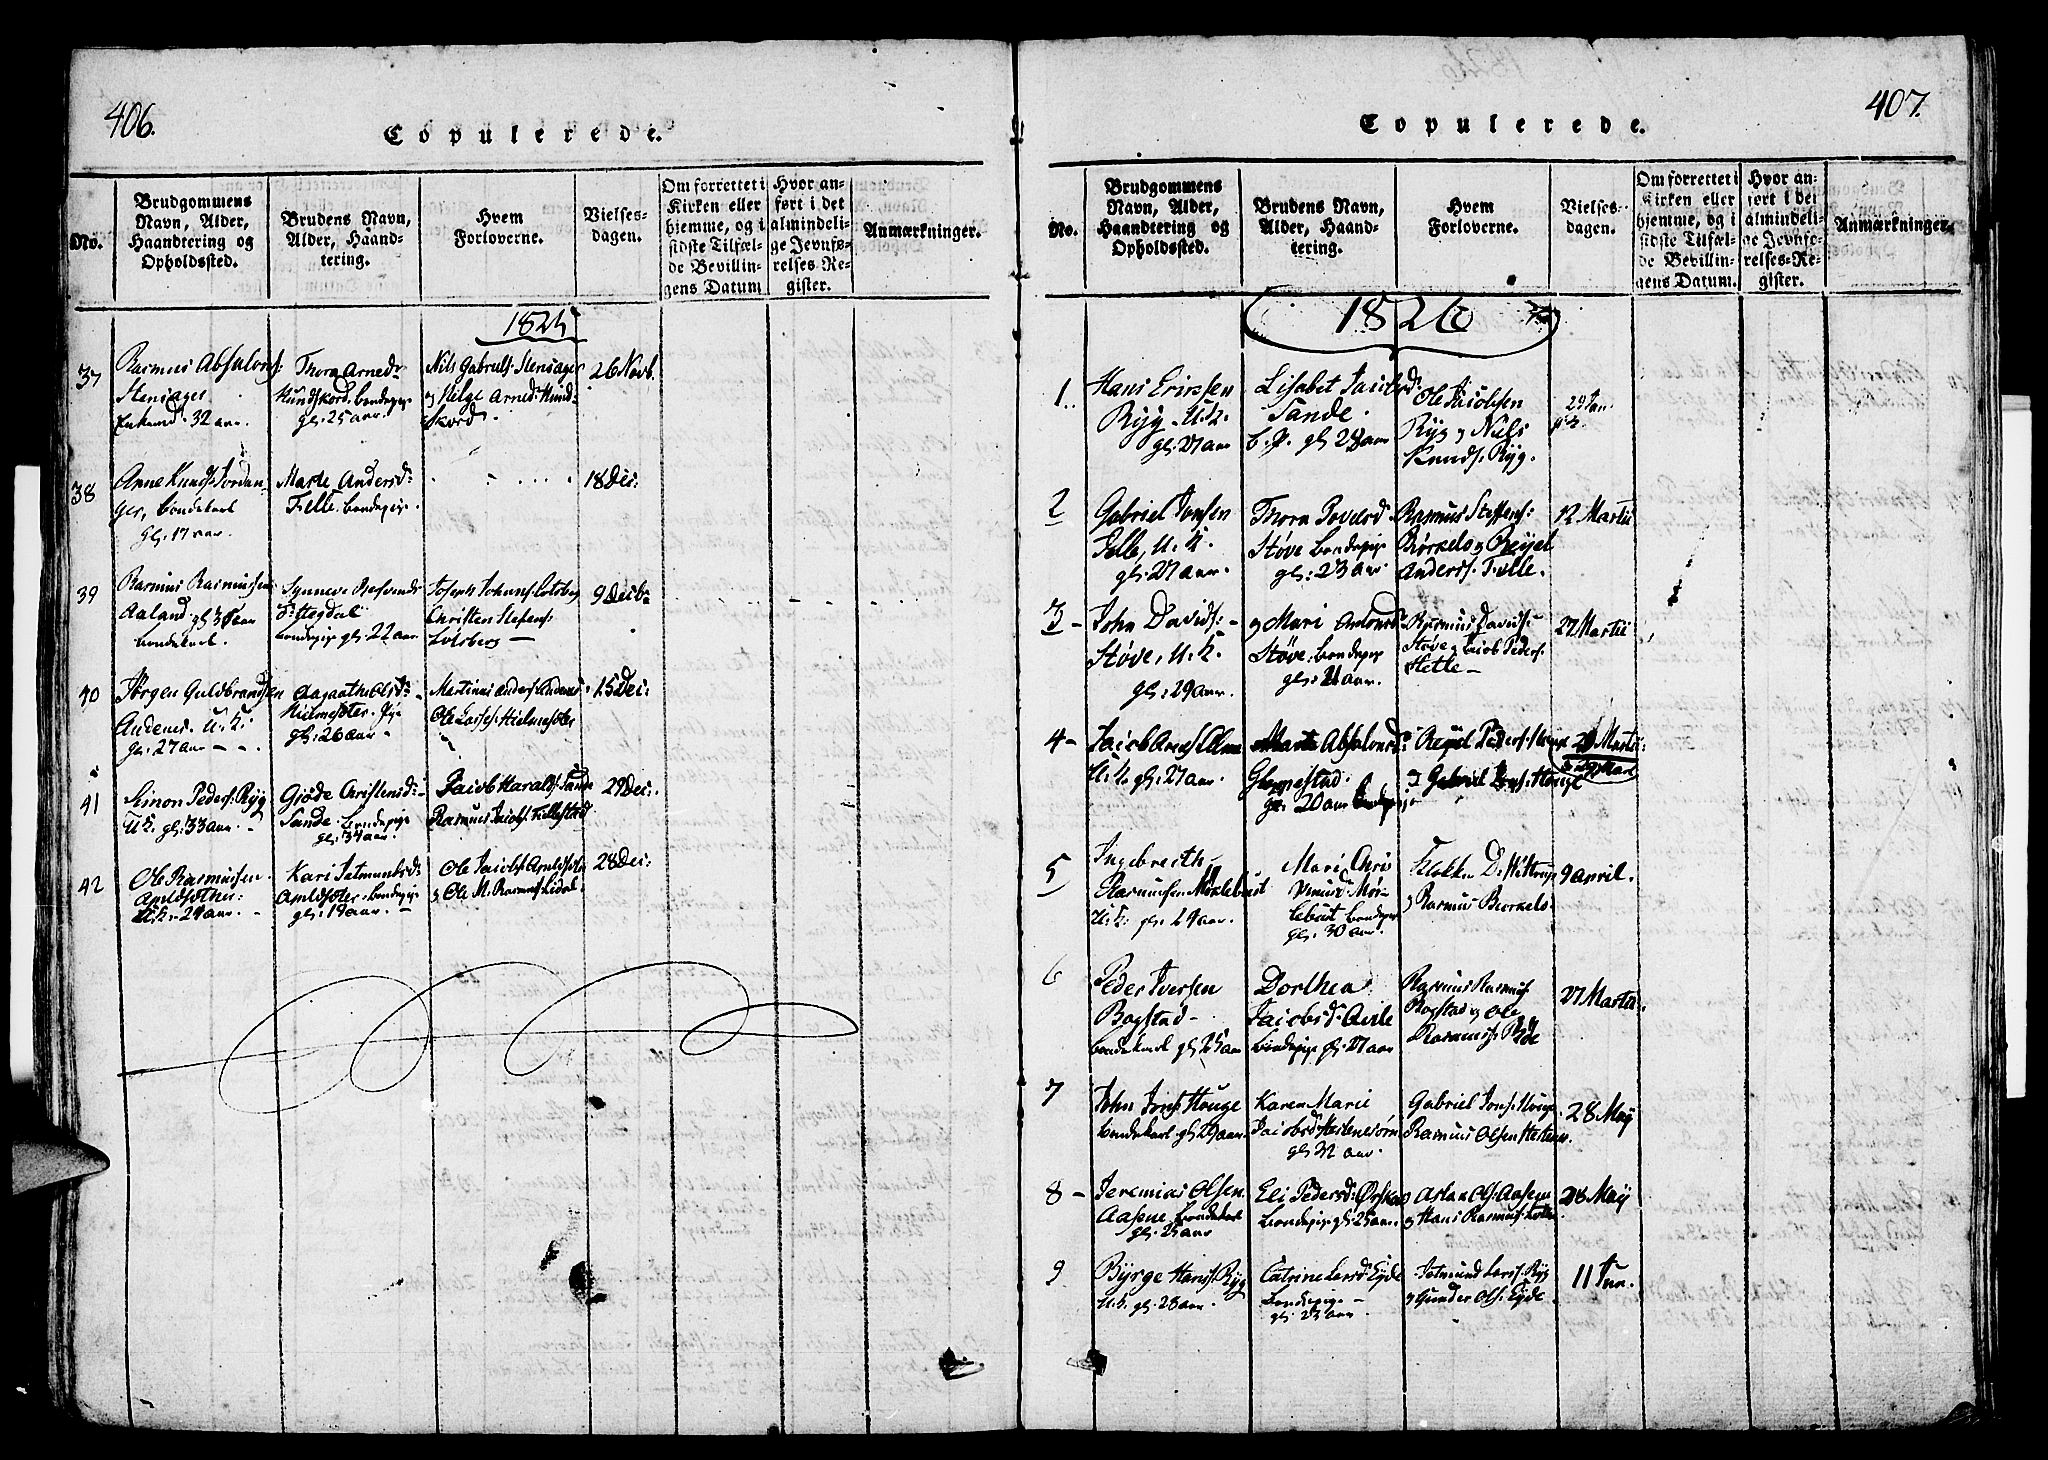 406.
Copulerede.
No.
Brudgommens
Navn, Alder,
Haandtering og
Opholdssted.
Brudens Navn,
Alder, Haand-
tering.
Hvem
Forloverne.
Vielses-
dagen.
Om forrettet i
Kirken eller
hjemme, og i
sidste Tilfæl-
de Bevillin-
gens Datum
Hvor an-
ført i det
almindeli-
ge Jevnfø-
relses-Re-
gister.
Anmærkninger.
1825
37
Rasmus Absalons:
Stensager
Enkemd. 32 aar.
Thora Arnedr
Hundskord bondepige
gl: 25 aar.
Nils Gabriels: Stensager
og Helge Arneds: Hund-
skord.
26 Novb.
38
Arne Knuds: Jordan-
ger, bondekarl
gl: 17 aar.
Marte Andersd:
Felle. bondepige.
18 Dec:
39
Rasmus Rasmussen
Aaland gl: 36 aar
bondekarl.
Synneve
Hegdal
bondepige gl: 22 aar.
Joseph Johans: Lotsberg
Christen Stefens:
Lotsberg
9 Decb
40
Jørgen Guldbrandsen
Andenes. U: K:
gl: 27 aar
Aagaathe Olsd:
Hielmesæter. Pige
gl: 26 aar
Martinus Anders: Andenes
Ole Larses: Hielmesæter
15 Dec:
41
Simon Peders: Ryg
U: K: gl: 33 aar.
Giøde Christensd:
Sande. bondepige
gl: 34 aar.
Jacob Haralds: Sande
Rasmus Jacobs: Fellestad
29 Dec:
42
Ole Rasmussen
gl: 29 aar.
Kari Jetmundsd:
bondepige
gl: 19 aar.
Ole Jacobs:
og Ole M. Rasmus:
28 Dec:
407.
Copulerede.
No.
Brudgommens
Navn, Alder,
Haandtering og
Opholdssted.
Brudens Navn,
Alder, Haand-
tering.
Hvem
Forloverne.
Vielses-
dagen.
Om forrettet i
Kirken eller
hjemme, og i
sidste Tilfæl-
de Bevillin-
gens Datum.
Hvor an-
ført i det
almindeli-
ge Jevnfø-
relses-Re-
gister.
Anmærkninger.
1826
1.
Hans Ericssen
Ryg. U. K.
gl: 27 aar
Lisabet Jacobsd:
Sande.
b. p. gl: 28 aar
Ole Jacobsen
Ryg og Niels
Knuds: Ryg.
29 Jan.
2
Gabriel Jonsen
Felle, U. K.
gl: 27 aar.
Thora Povelsd
Støve bondepige
gl: 23 aar.
Rasmus Steffens:
Børkelo og Reijel
Anderss: Felle.
12 Martii
3
John Davids:
Støve, U. K.
gl: 29 aar.
og Mari Antonsd:
Støve. bondepige
gl: 21 aar.
Rasmus Davids:
Støve og Jacob Peders:
Hetle
27 Martii
4
U. K. gl: 27 aar.
Marte Absalonsd:
gl: 20 aar bondepige
Reijel Peders:
og Gabriel Jons: Houge
Martii
5
Ingebreth
Rasmussen Møklebust
U: K: gl: 29 aar.
Mari
lebust bondepige
gl: 30 aar.
og Rasmus Børkelo
9 April.
6
Peder Iversen
Bogstad
bondekarl gl: 25 aar
Dorthea
Jacobsd:
bondepige gl: 27 aar
Rasmus Rasmus:
Bogstad og Ole
Rasmuss:
27 Martii
7
John Jons: Houge
bondekarl gl: 29 aar.
Karen Marie
Jacobsd: Hestenesøren
gl: 32 aar.
Gabriel Jons: Houge
Rasmus Olsen Hestenes.
28 Maij
8
Jeremias Olsen
Aasene bondekarl
gl: 25 aar
Eli Pedersd: Ørskar
bondepige gl: 25 aar.
Aslan Ols: Aasene
og Hans Rasmus: Felle
28 Maij
9
Byrge Hans: Ryg
U. K. gl: 28 aar.
Catrine Larsd: Eyde
bondepige
gl: 23 aar
Jetmund Larss: Ryg
og Gunder Ols: Eyde.
11 Jun.